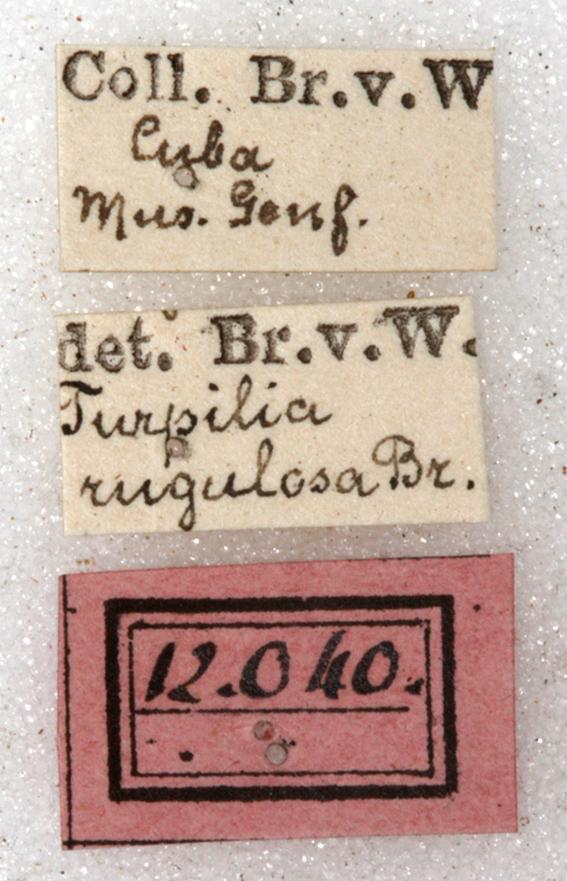 Coll. Br.v.W
Cuba
Mus. Genf.
det. Br.v.W.
Turpilia
rugulosa Br.
12.040.